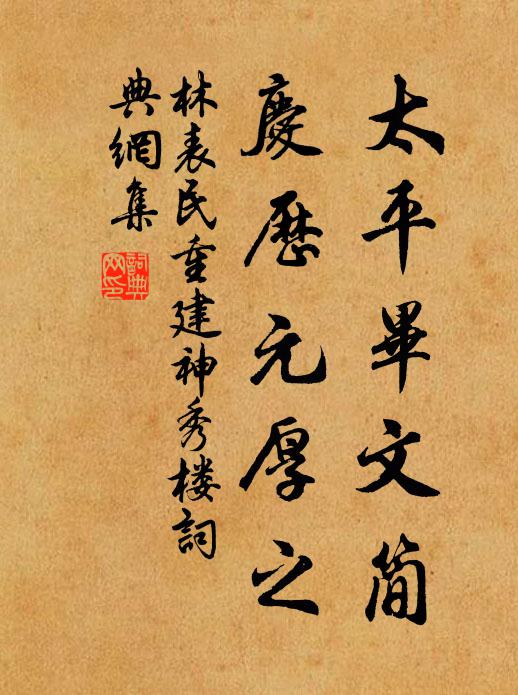 太平畢文簡
慶歷元厚之
林表民重建神秀楼詞
典網集
詞典網印